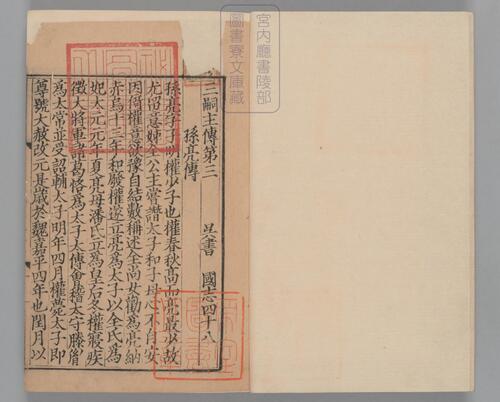 三嗣主傳第三 吳書 國志四十八
孫亮傳
孫亮字子明權少子也權春秋髙而亮最少故
尤留意姊全公主甞譖太子和子母心不自安
因倚權意欲豫自結數稱述全尚女勸爲亮納
赤烏十三年和廢權遂立亮爲太子以全氏爲
妃太元元年夏亮母潘氏立爲皇后冬權寢疾
徵大將軍諸葛恪爲太子太傅會稽太守滕胤
爲太常並受詔輔太子明年四月權薨太子即
尊號大赦改元是歲於魏嘉平四年也閏月以
宮内廳書陵部
圖書寮文庫藏